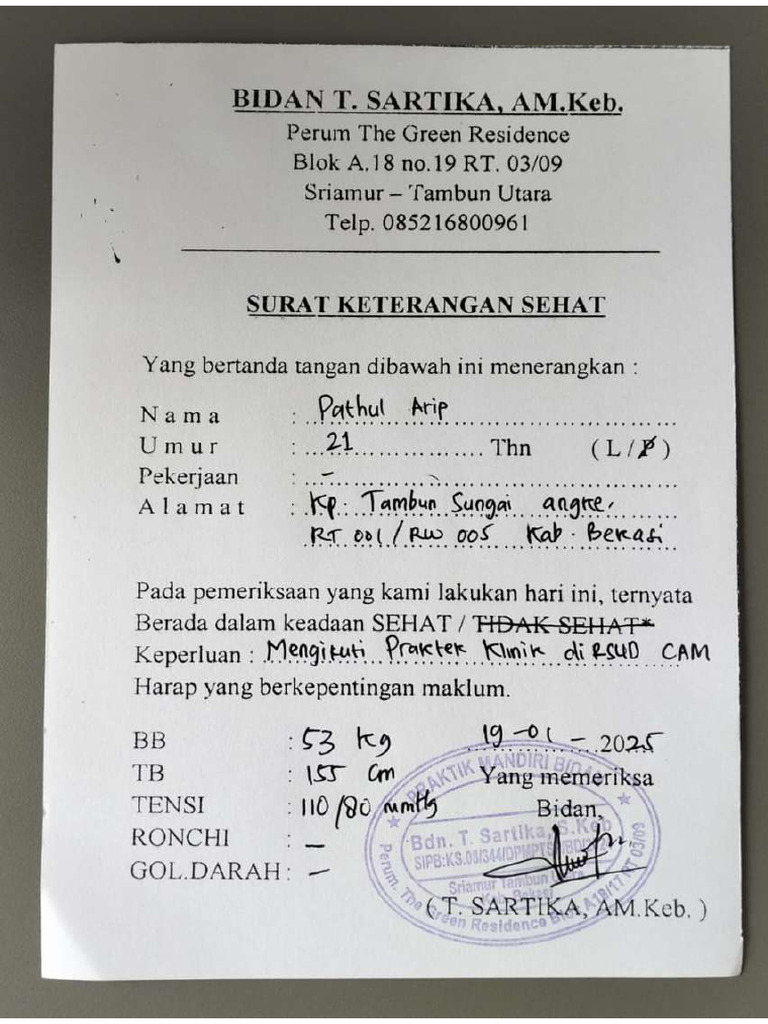 BIDAN T. SARTIKA, AM.Keb.
Perum The Green Residence
Blok A.18 no.19 RT. 03/09
Sriamur – Tambun Utara
Telp. 085216800961
SURAT KETERANGAN SEHAT
Yang bertanda tangan dibawah ini menerangkan :
Nama : Pathul Arip
Umur : 21 Thn (L/P)
Pekerjaan : -
Alamat : Kp. Tambun Sungai angke,
RT 001 / RW 005 Kab. Bekasi
Pada pemeriksaan yang kami lakukan hari ini, ternyata
Berada dalam keadaan SEHAT / TIDAK SEHAT*
Keperluan : Mengikuti Praktek Klinik di RSUD CAM
Harap yang berkepentingan maklum.
BB : 53 kg
19-01-2025
TB : 155 cm
Yang memeriksa
TENSI : 110/80 mmHg
Bidan,
RONCHI : -
GOL.DARAH : -
PRAKTIK MANDIRI BIDAN
Bdn. T. Sartika, S.Keb
Sriamur Tambun Utara
Kab. Bekasi
Perum. The Green Residence Blok A18/17 RT 03/09
( T. SARTIKA, AM.Keb. )